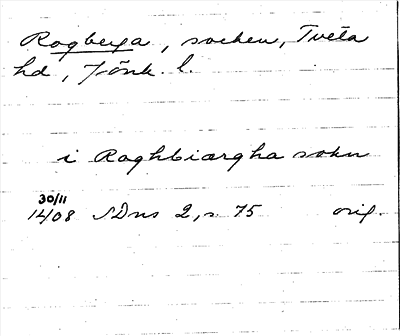 Rogberga, socken, Tveta
hd, Jönk. l.
i Roghbiærgha sokn
30/11
1408 SDns 2, s. 75 orig.